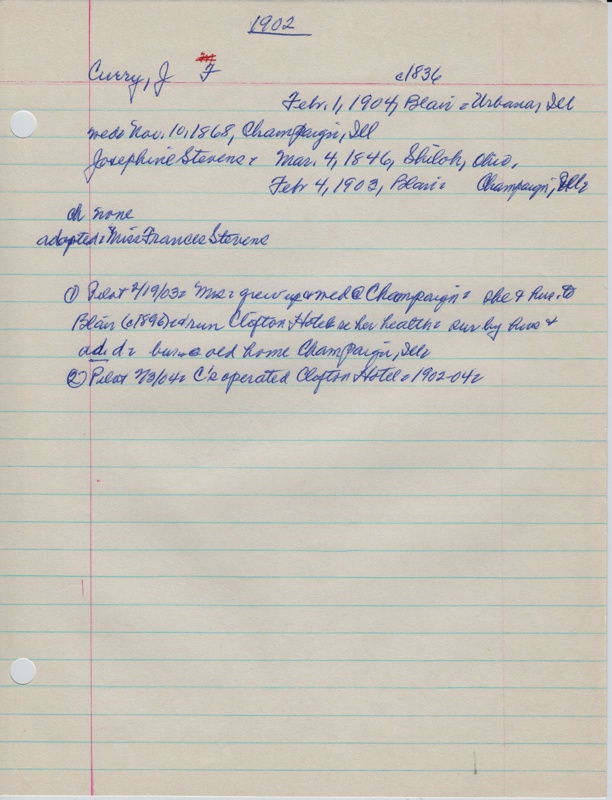 1902
Curry, J F c1836
Feb. 1, 1904, Blair = Urbana, Ill
med = Nov. 10, 1868, Champaign, Ill
Josephine Stevens = Mar. 4, 1846, Shiloh, Ohio,
Feb 4, 1903, Blair = Champaign, Ill =
ch none
adopted = Miss Frances Stevens
① Pilot 2/19/03 = Mrs = grew up & med @ Champaign = she & hus. to
Blair (c1896) run Clifton Hotel = her health = sur by hus &
ad. d = bur = @ old home Champaign, Ill =
② Pilot 2/3/04 = C's operated Clifton Hotel = 1902-04 =